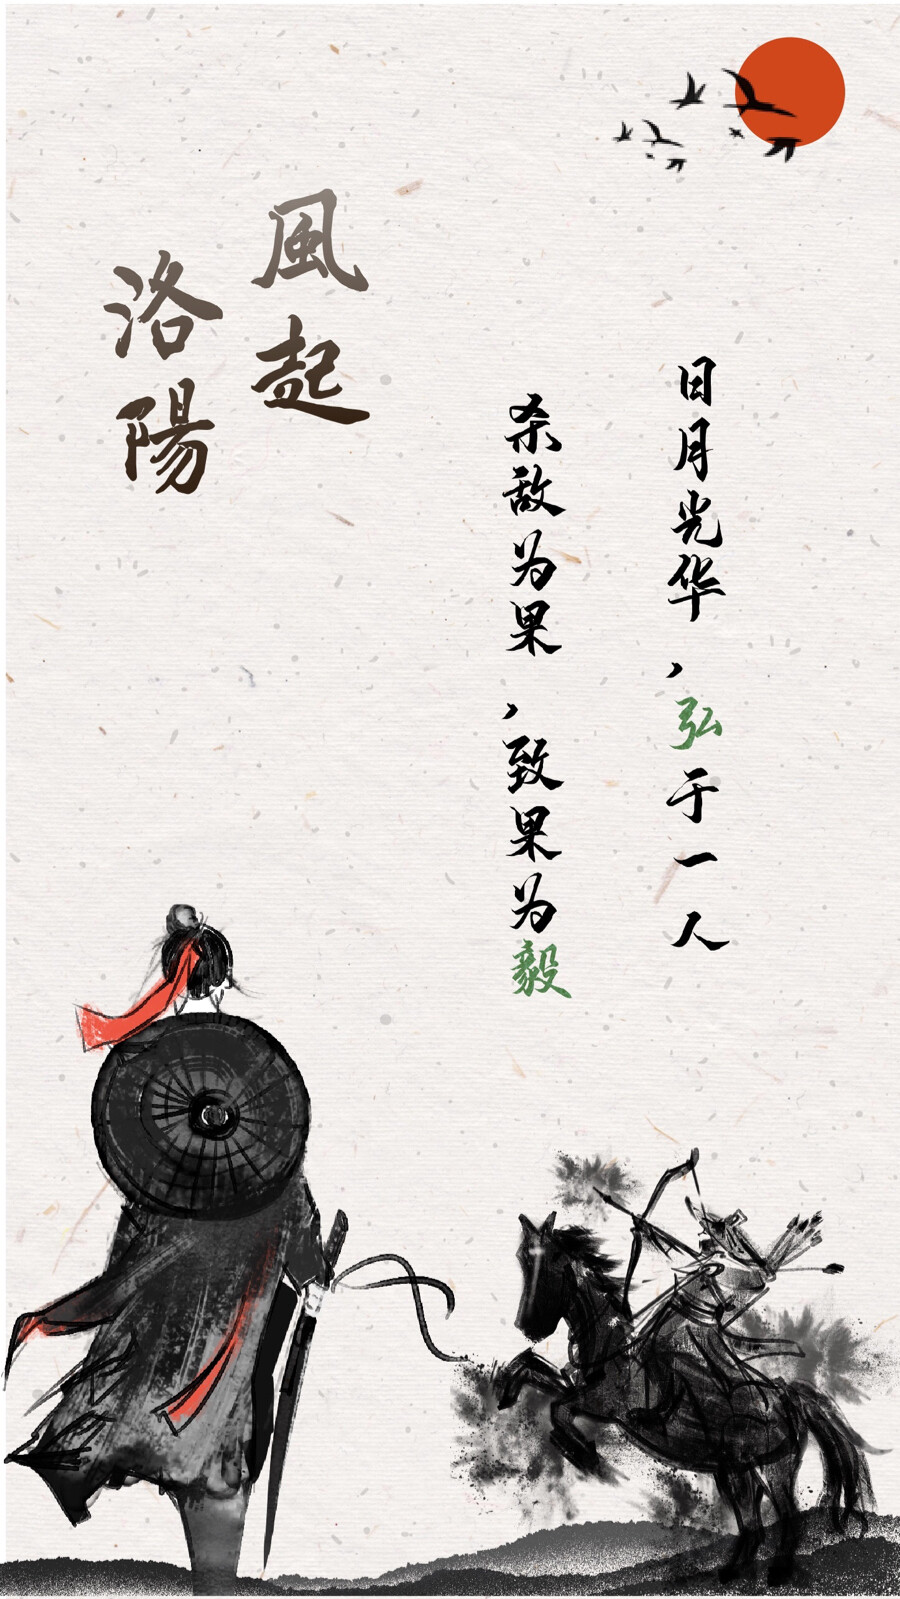 日月光华，弘于一人
杀敌为果，致果为毅
風起
洛陽